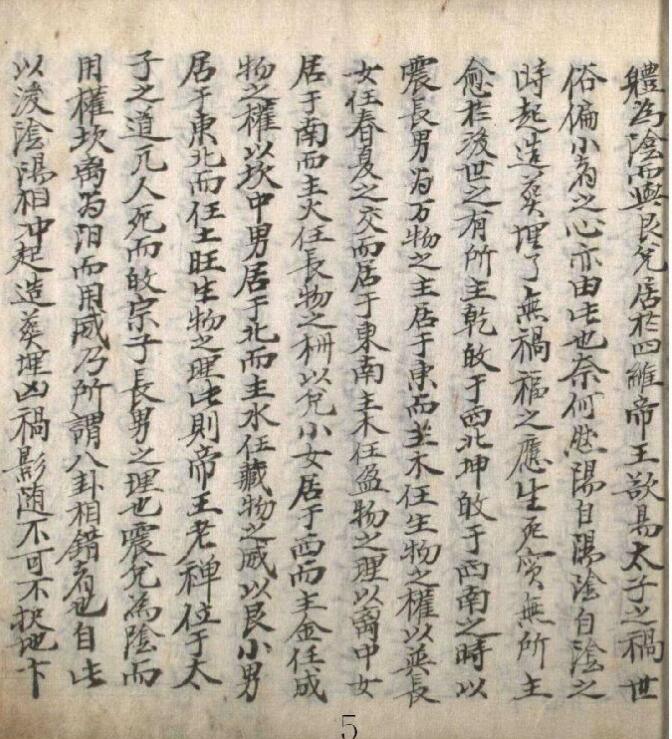 體為陰而與艮兌居於四維帝王欲易太子之禍世
俗偏小者之心亦由此也奈何然陽自陽陰自陰之
時起造葬埋了無禍福之應生死實無所主
愈於後世之有所主乾故于西北坤故于西南之時以
震長男為万物之主居于東而主木任生物之權以巽長
女任春夏之交而居于東南主木任盈物之理以离中女
居于南而主火任長物之柄以兌小女居于西而主金任成
物之權以坎中男居于北而主水任藏物之威以艮小男
居于東北而任土旺生物之理此則帝王老禅位于太
子之道兀人死而故宗子長男之理也震兌為陰而
用權坎离为阳而用威乃所謂八卦相錯者也自此
以後陰陽相冲起造葬埋凶禍影随不可不択地卞
5